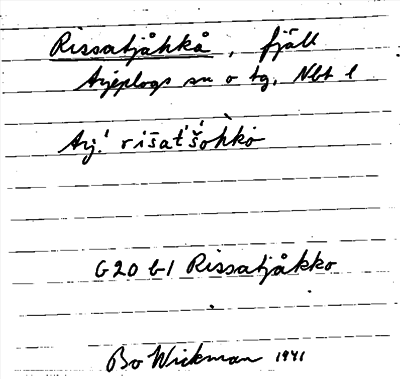 Rissatjåhkå, fjäll
Arjeplogs sn o tg, Nbt l
Arj. rišat´šòhko
G20 b1 Rissatjåkko
Bo Wickman 1941